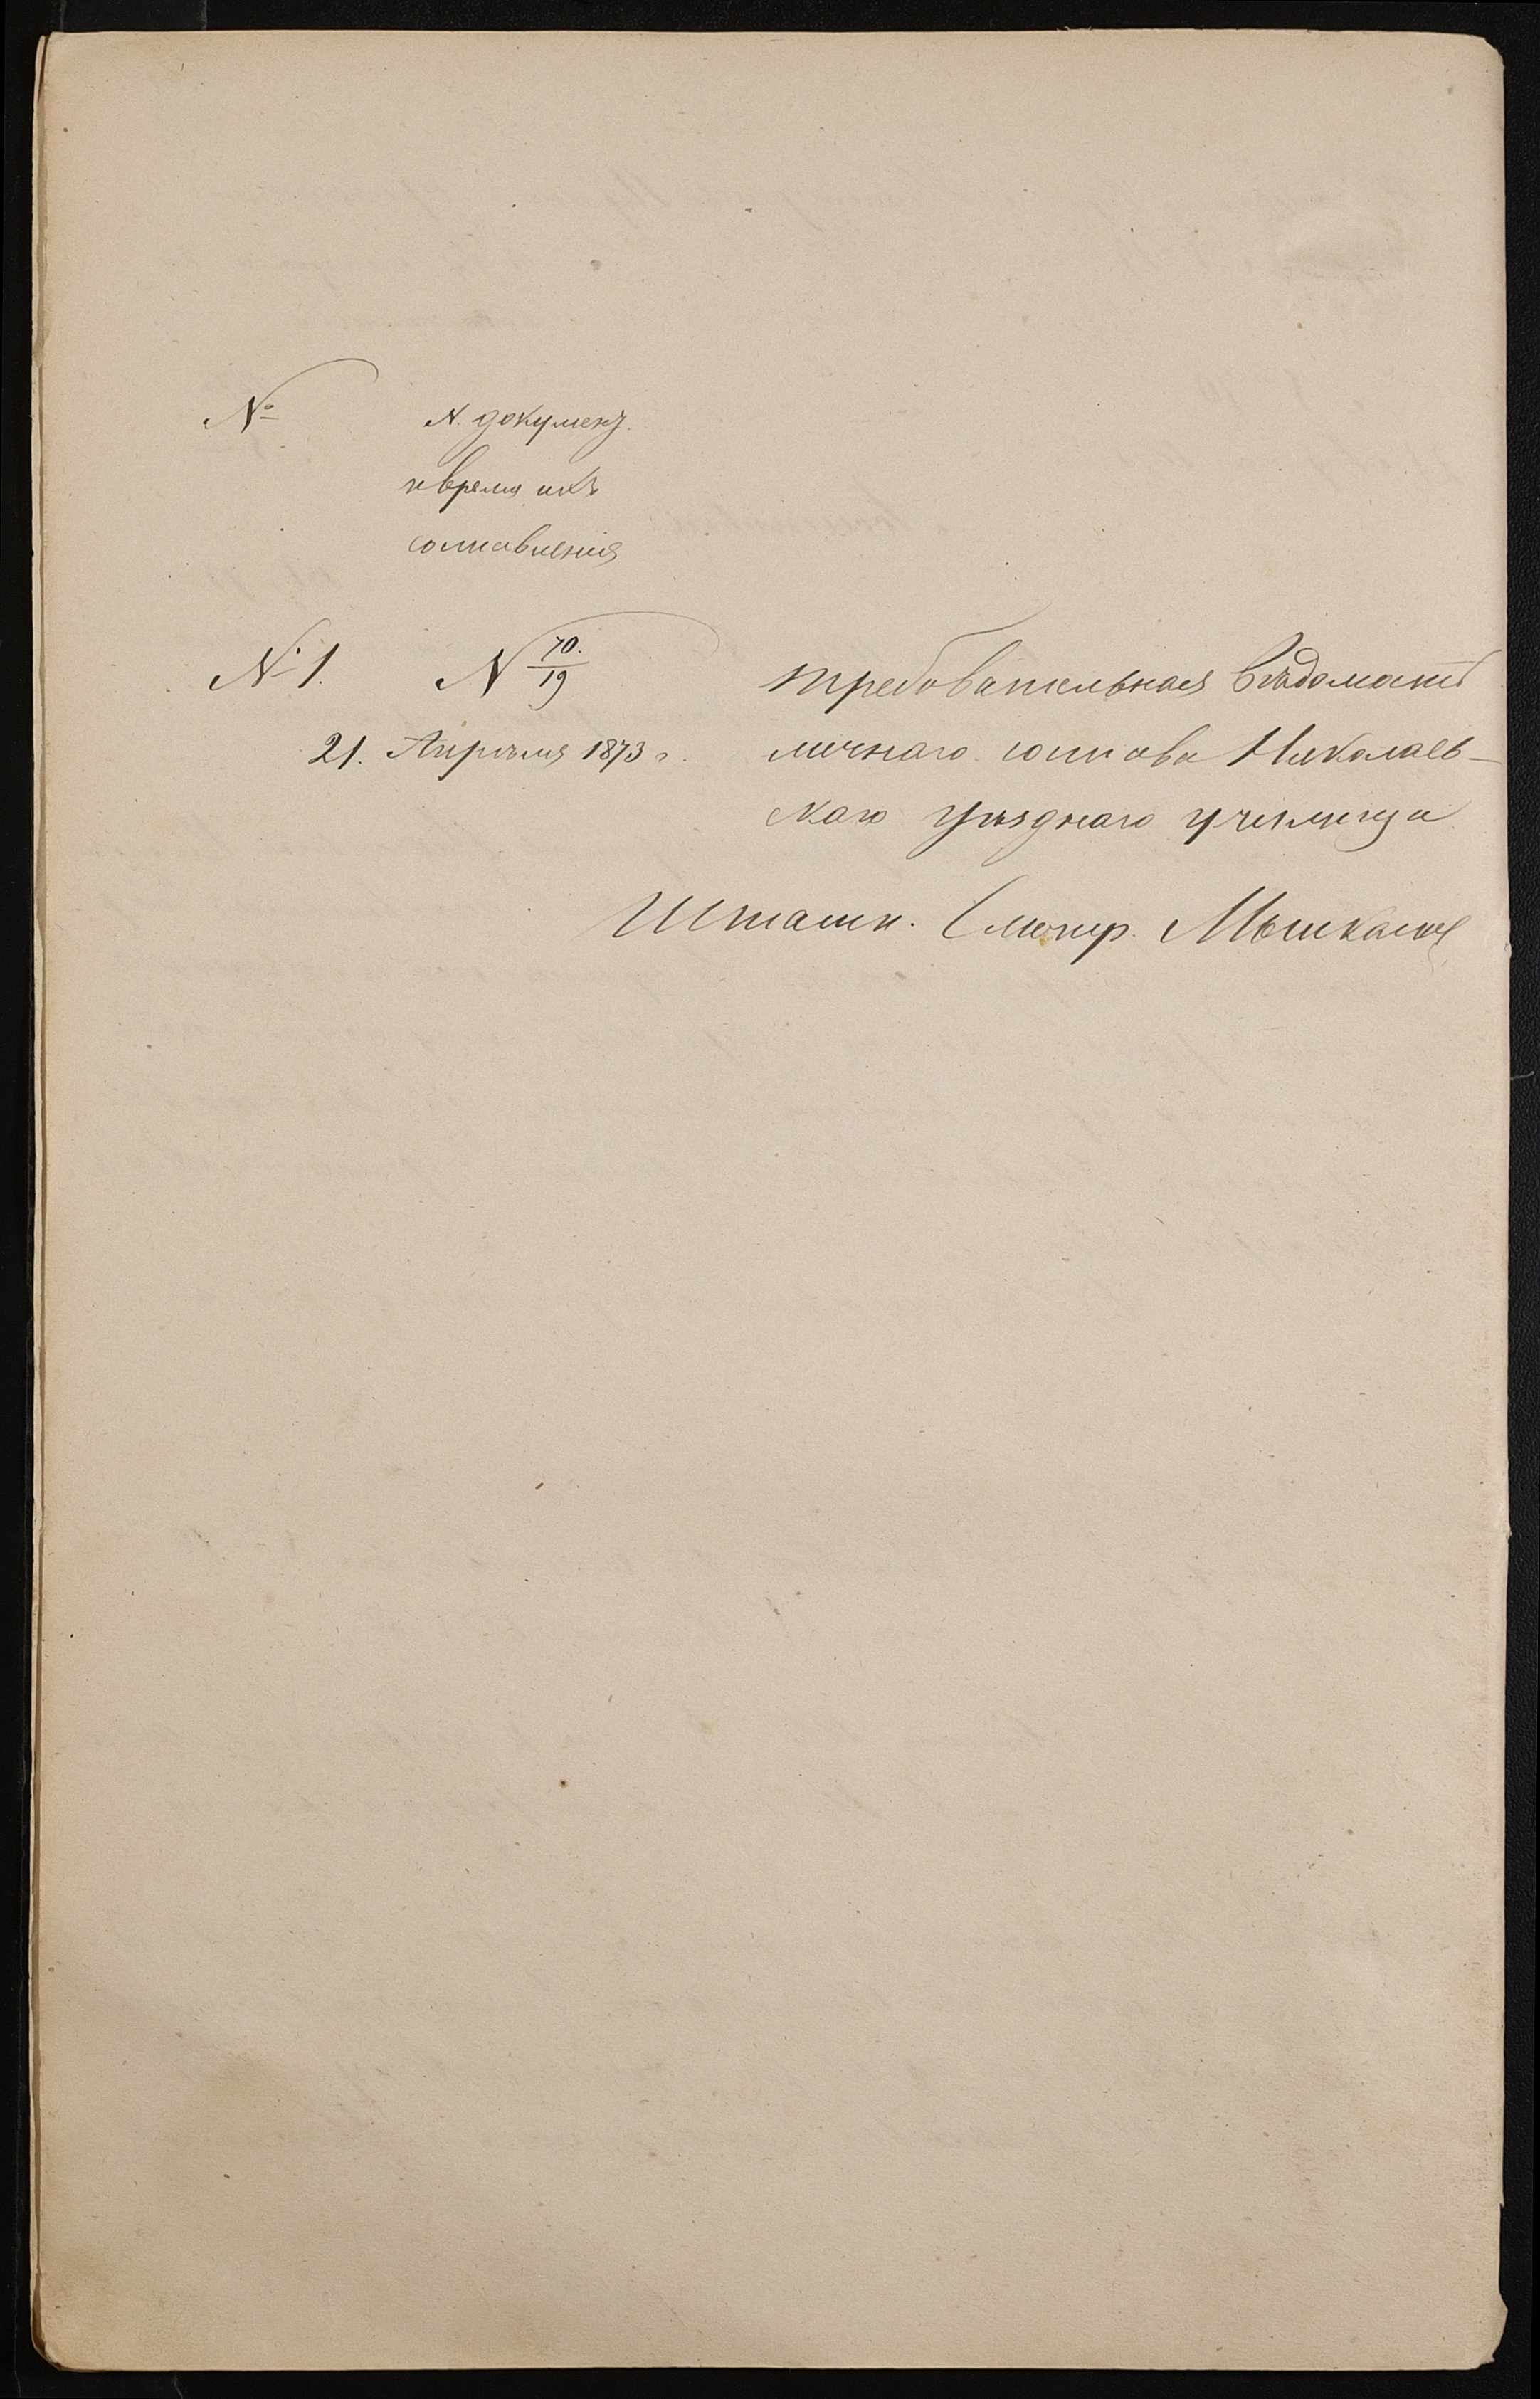 №
N. докумен.
и время ихъ
составленiя
№ 1.
N 70./19
21. Апрѣля 1873 г.
требовательная вѣдомость
личнаго состава Николаев-
скаго уѣзднаго училища
Штатн. Смотр.